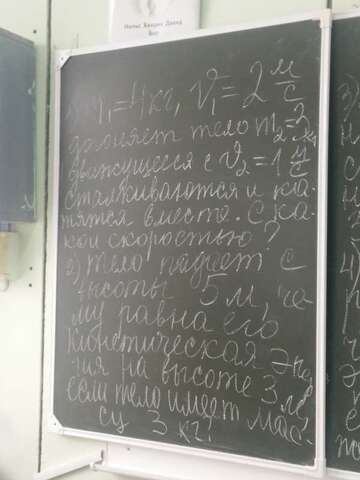 Нильс Хенрик Давид
Бор
1) m₁=4кг, V₁=2 м/с
догоняет тело m₂=2 кг
движущееся с V₂=1 м/с
сталкиваются и ка-
тятся вместе. С ка-
кой скоростью?
2) Тело падает с
высоты 5 м, че-
му равна его
Кинетическая энер
гия на высоте 3 м,
если тело имеет мас-
су 3 кг?
3)
4)